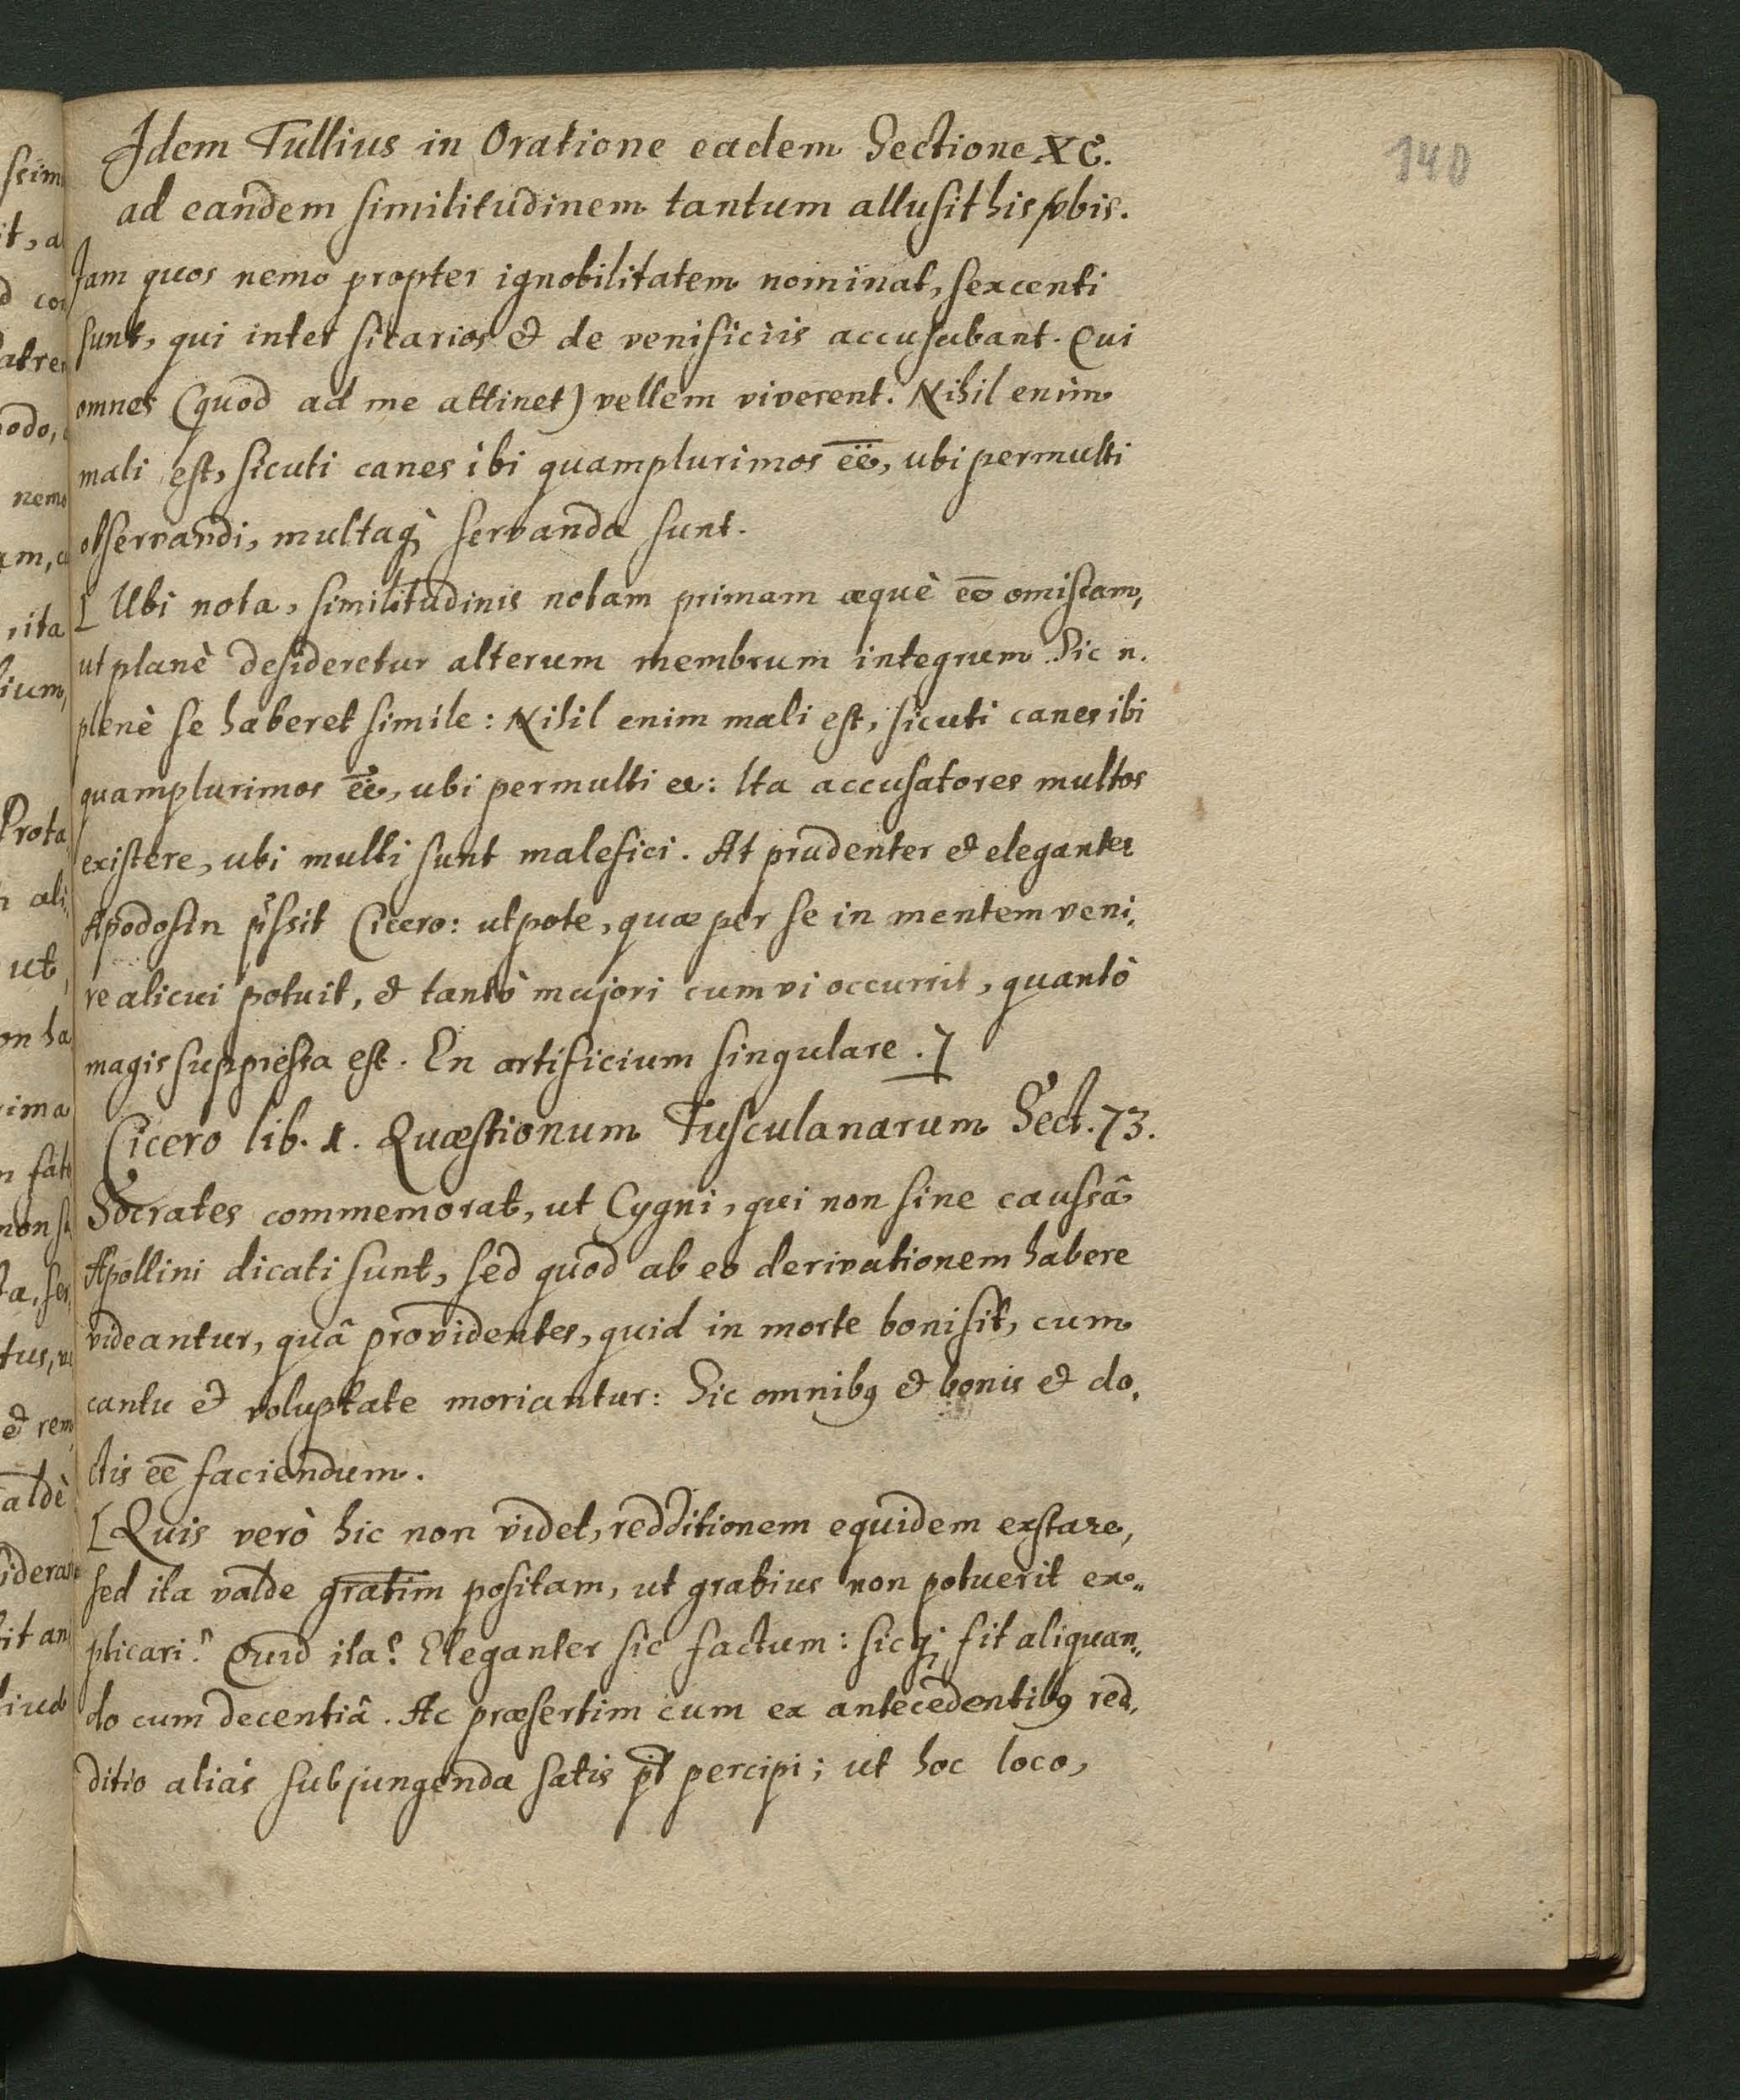 140
Idem Tullius in Oratione eadem Sectione XC.
ad eandem similitudinem tantum allusit his vbis.
Jam quos nemo propter ignobilitatem nominat, sexcenti
sunt, qui inter sicarios et de venificiis accusabant. Qui
omnes (quod ad me attinet) vellem viverent. Nihil enim
mali est, sicuti canes ibi quamplurimos ēē, ubi permulti
observandi, multaq; servanda sunt.
[Ubi nota, similitudinis notam primam æquè eō omissam,
ut planè desideretur alterum membrum integrum. Sic n.
plenè se haberet simile: Nihil enim mali est, sicuti canes ibi
quamplurimos ēē, ubi permulti &: Ita accusatores multos
existere, ubi multi sunt malefici. At prudenter et eleganter
Apodosin Cicero: utpote, quæ per se in mentem veni„
re alicui potuit, et tantò majori cum vi occurrit, quantò
magis suppressa est. En artificium singulare.]
Cicero lib. 1. Quæstionum Tusculanarum Sect. 73.
Socrates commemorat, ut Cygni, qui non sine caussâ
Apollini dicati sunt, sed quod ab eo derivationem habere
videantur, quâ providentes, quid in morte boni sit, cum
cantu et voluptate moriantur: Sic omnibꝰ et bonis et do„
ctis eē faciendum.
[Quis verò hic non videt, redditionem equidem exstare,
sed ita valde positam, ut gratius non potuerit ex„
plicari? Quid ita? Eleganter sic factum: sicq; fit aliquan„
do cum decentiâ. Ac præsertim cum ex antecedentibꝰ red„
ditio aliàs subjungenda satis pt percipi; ut hoc loco,